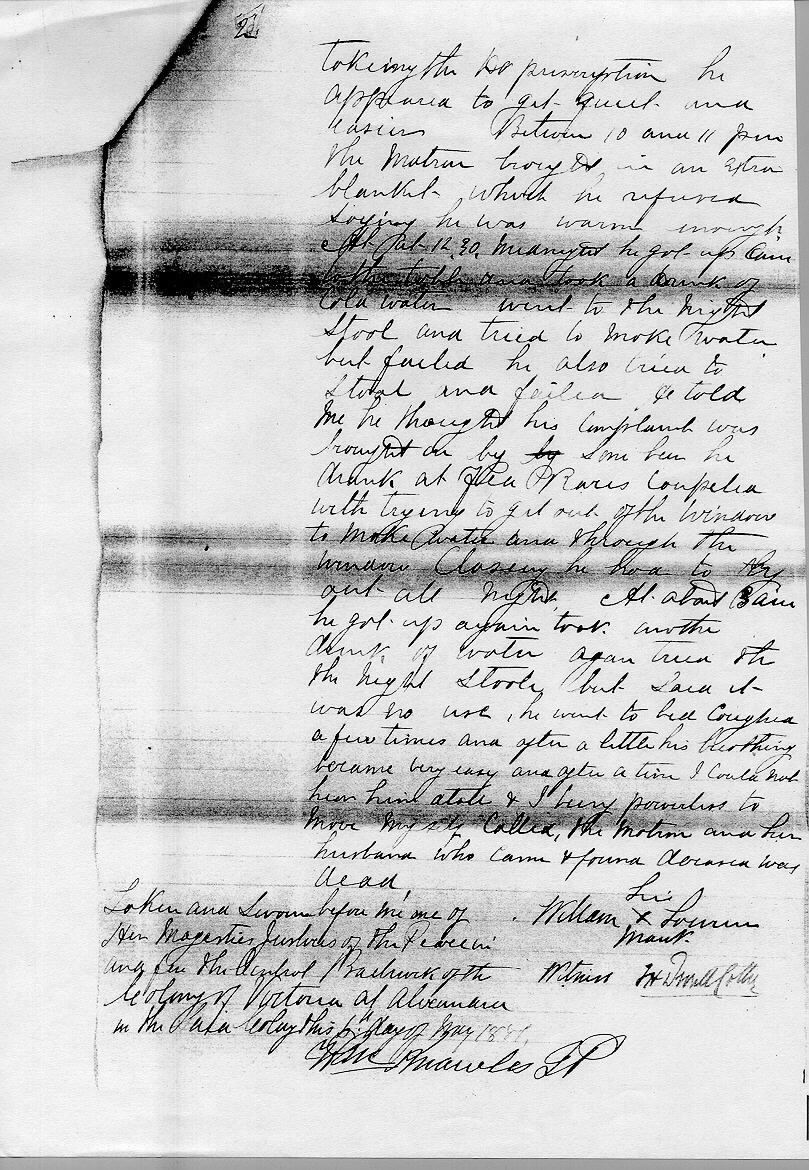 2
takeing the prescription he
appeared to get quiet and
easier Between 10 and 11 pm
the Matron brought in an extra
blanket which he refused
saying he was warm enough
At 12.30 Midnight he got up Cam
to the table and took a drink of
Cold water went to the Night
Stool and tried to make water
but failed he also tried to
Stool and failed he told
Me he thought his Complaint was
brought on by by Some beer he
drank at Races Coupeled
with trying to get out of the window
to make water and through the
window Closeing he had to lay
out all Night. At about 3 am
he got up again took another
drink of water again tried the
the Night Stool, but Said it
was no use, he went to bed Coughed
a few times and after a little his breathing
became very easy and after a time I Could not
hear him atole & I being powerless to
Move Myself Called, the Matron and her
husband who Came & found deceased was
dead
Taken and Sworn before me one of
Her Magesties Justices of the Peace in
and for the Central Bailiwick of the
Colony of Victoria at Alexandra
in the Said Colony this day of May
his
William X
Mark.
Witness
JP